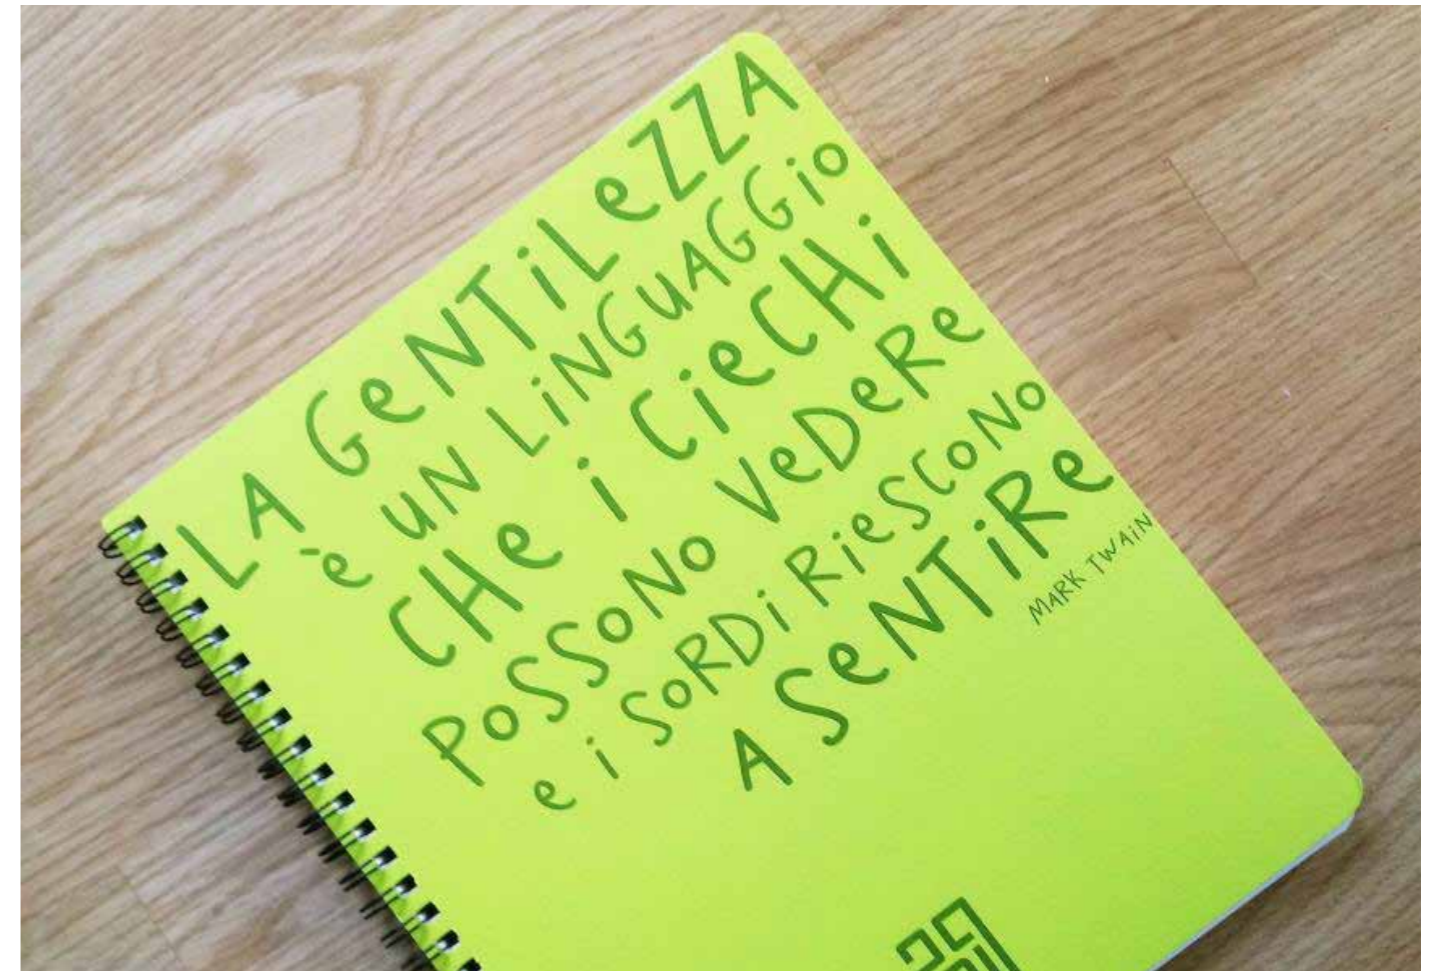 LA GeNTiLeZZA
è UN LiNGUAGGio
CHe i CieCHi
PoSSoNo VeDeRe
e i SoRDi RieSCoNo
A SeNTiRe
MARK TWAiN